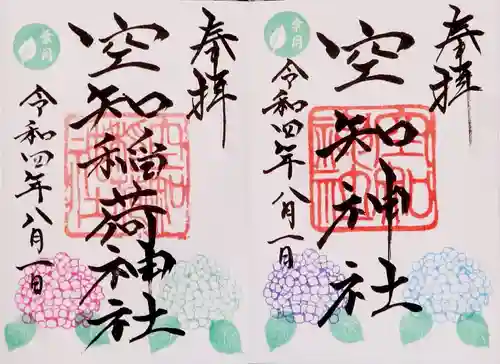 奉拝
空知稲荷神社
令和四年八月一日
奉拝
空知神社
令和四年八月一日